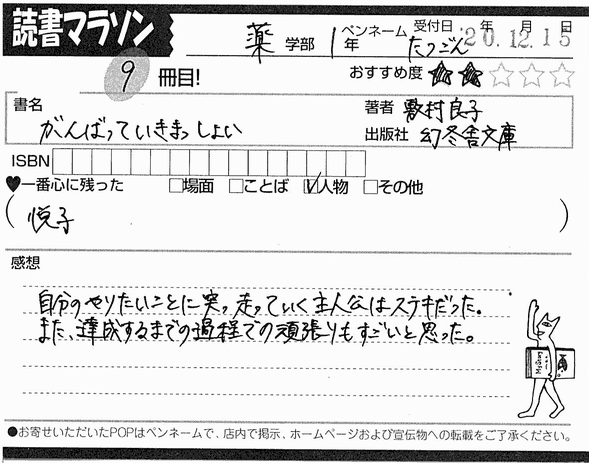 読書マラソン
薬 学部 1年 ペンネーム たつごん 受付日 20年12月15日
9 冊目! おすすめ度 ★★☆☆☆
書名 がんばっていきまっしょい
著者 敷村良子
出版社 幻冬舎文庫
ISBN
♥一番心に残った □場面 □ことば ☑人物 □その他
( 悦子 )
感想
自分のやりたいことに突っ走っていく主人公はステキだった。
また、達成するまでの過程での頑張りもすごいと思った。
●お寄せいただいたPOPはペンネームで、店内で掲示、ホームページおよび宣伝物への転載をご了承ください。